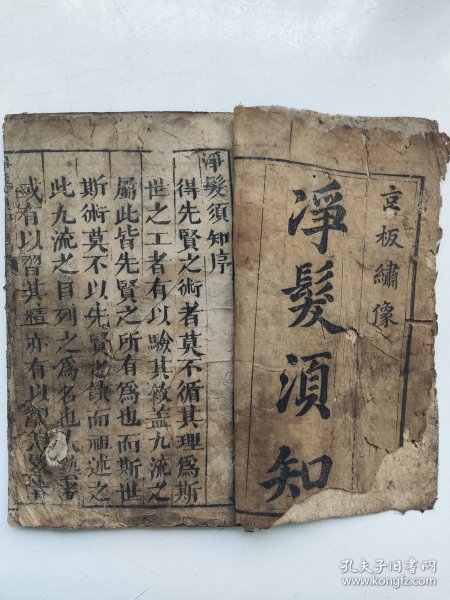 京板繡像
淨髮須知
淨髮須知序
得先賢之術者莫不循其理為斯
世之工者有以驗其效盖九流之
屬此皆先賢之所有為也而斯世
斯術莫不以先賢之缺而祖述之
此九流之目列之為名也
或有以習其精亦有以
孔夫子旧书网
www.kongfz.com